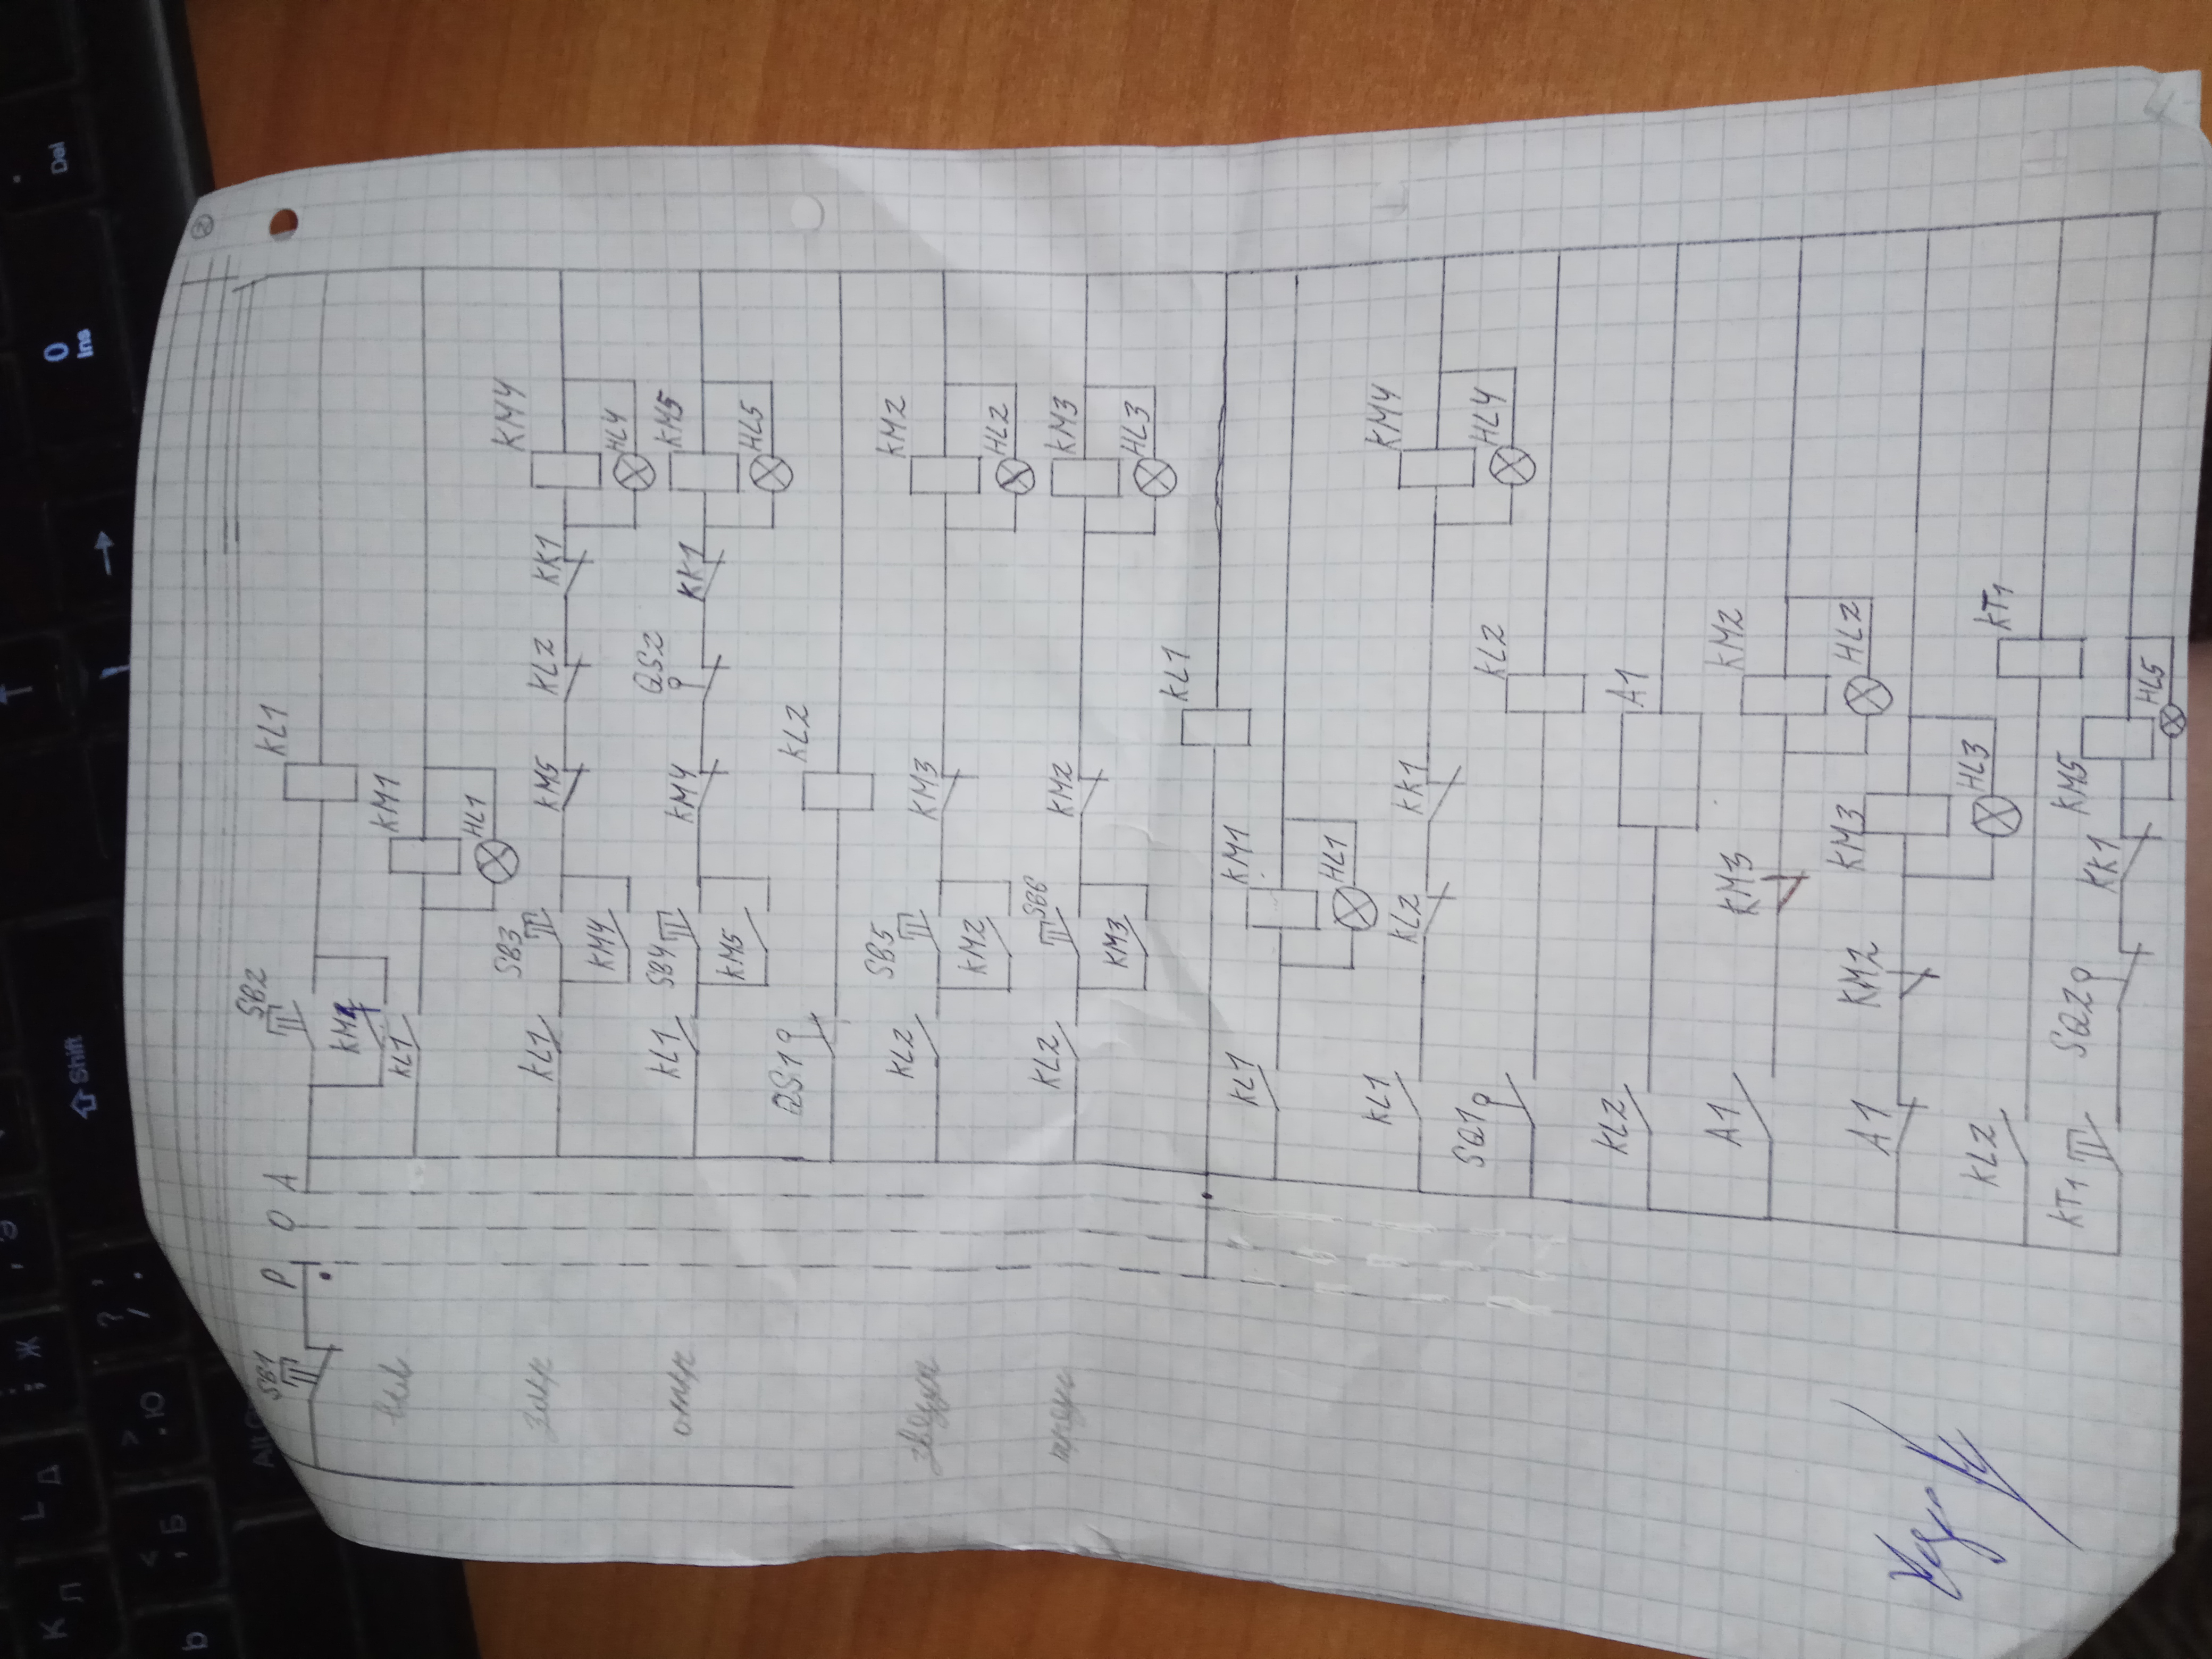 2
SB1
P O A
SB2
KL1
KL1
KM1
HL1
KL1
SB3
KM4
KM5
KL2
KK1
KM4
HL4
KL1
SB4
KM5
KM4
QS2
KK1
KM5
HL5
QS1
KL2
KL2
SB5
KM2
KM3
KM2
HL2
KL2
SB6
KM3
KM2
KM3
HL3
KL1
KL1
KM1
HL1
KL1
KL2
KK1
KM4
HL4
SQ1
KL2
KL2
A1
A1
KM3
KM2
HL2
A1
KM2
KM3
HL3
KL2
KT1
KT1
SQ2
KK1
KM5
HL5
0
Ins
Del
Shift
К
Л
Д
Ж
Б
Ю